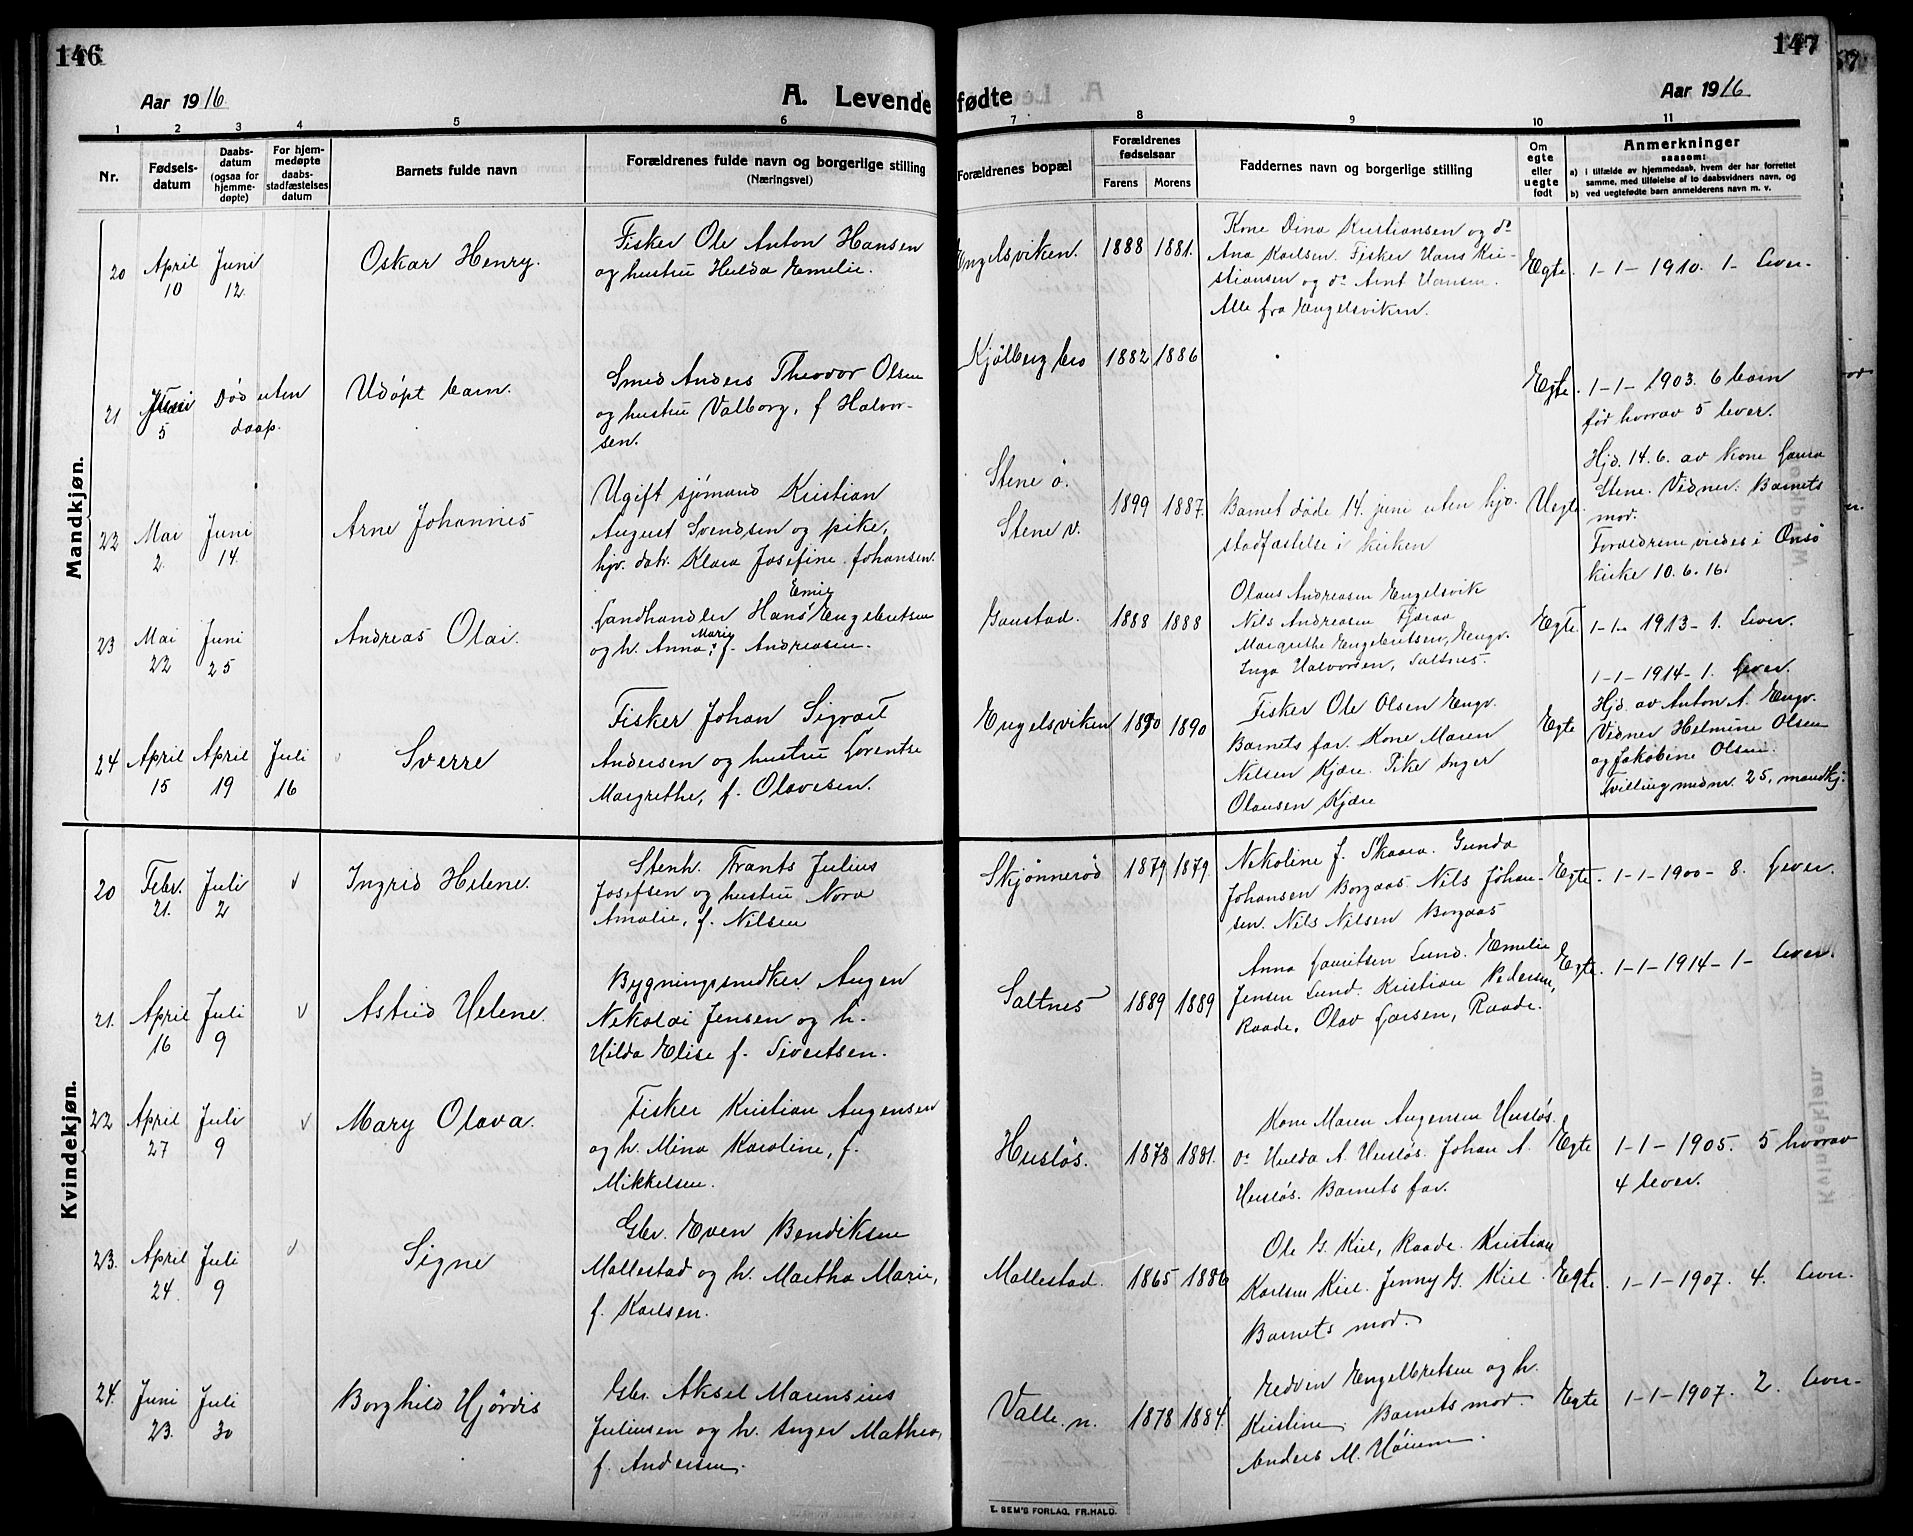 146
147
Aar 1916.
A. Levende fødte
Aar 1916
1 2 3 4 5 6 7 8 9 10 11
Nr.
Fødsels-
datum
Daabs-
datum
(ogsaa for
hjemme-
døpte)
For hjem-
medøpte
daabs-
stadfæstelses
datum
Barnets fulde navn
Forældrenes fulde navn og borgerlige stilling
(Næringsvei)
Forældrenes bopæl
Forældrenes
fødselsaar
Farens Morens
Faddernes navn og borgerlige stilling
Om
egte
eller
uegte
født
Anmerkninger
saasom:
a) i tilfælde av hjemmedaab, hvem der har forrettet
samme, med tilføielse af to daabsvidners navn, og
b) ved uegtefødte barn anmelderens navn m. v.
Mandkjøn.
20
April
10
Juni
12.
Oskar Henry.
Fisker Ole Anton Hansen
og hustru Hulda Emelie.
Engelsviken.
1888 1881.
Kone Dina Kristiansen og do
Ana Karlsen. Fisker Hans Kri-
stiansen og do Arnt Hansen.
Alle fra Engelsviken.
Egte.
1-1-1910. 1- lever.
21
Juni
5
Død uten
daap.
Udøpt barn.
Smed Anders Theodor Olsen
og hustru Valborg, f Halvor-
sen.
Kjølberg bro
1882 1886
Egte.
1-1-1903. 6 barn
før hvorav 5 lever.
22
Mai
2.
Juni
14.
Arne Johannes
Ugift sjømand Kristian
August Svendsen og pike,
hjv. datr. Klara Josefine Johansen.
Stene ø.
Stene v.
1899 1887.
Barnet døde 14. juni uten hjd.
stadfæstelse i kirken
Uegte.
Hjd. 14.6. av kone Laura
Stene. Vidner: Barnets
mor.
Foraeldrene viedes i Onsø
kirke 10.6.16.
23
Mai
22
Juni
25
Andreas Olai.
Landhandler Hans Emil Engebretsen
og h. Anna Marie, f. Andreasen.
Gaustad.
1888 1888
Olaus Andreasen Engelsvik
Nils Andreasen Fjæraa
Margrethe Engebretsen, Engv.
Inga Halvorsen, Saltnes.
Egte
1-1-1913-1. Lever.
24
April
15
April
19
Juli
16
Sverre
Fisker Johan Sigvart
Andersen og hustru Lorentse
Margrethe, f. Olavesen.
Engelsviken
1890 1890
Fisker Ole Olsen Engv.
Barnets far. Kone Maren
Nilsen Kjære. Pike Inger
Olausen Kjære
Egte
1-1-1914-1. Lever.
Hjd. av Anton A. Engv.
Vidner Helmine Olsen
og Jakobine Olsen.
Tvilling med nr. 25. mandkj.
Kvindekjøn.
20
Febr.
21.
Juli
2
Ingrid Helene.
Stenh. Frants Julius
Josefsen og hustru Nora
Amalie, f. Nilsen
Skjønnerød
1879 1879
Nikoline J. Skaara. Gunda
Johansen Borgaas Nils Johan-
sen. Nils Nilsen Borgaas
Egte.
1-1-1900-8. Lever.
21.
April
16
Juli
9
Astrid Helene.
Bygningssnedker Augen
Nikolai Jensen og h.
Hilda Elise f. Sivertsen.
Saltnes
1889 1889
Anna Lauritsen Lund. Emelie
Jensen Lund. Kristian Pedersen,
Raade, Olav Larsen, Raade.
Egte.
1-1-1914-1- Lever.
22
April
27
Juli
9
Mary Olava.
Fisker Kristian Augensen
og h. Mina Karoline, f.
Mikkelsen.
Husløs.
1878 1881.
Kone Maren Augensen Husløs.
do Hulda A. Husløs. Johan A.
Husløs. Barnets far.
Egte
1-1-1905. 5 hvorav
4 lever.
23.
April
24
Juli
9
Signe
Gbr. Even Bendiksen
Mollestad og h. Martha Marie,
f. Karlsen.
Mollestad.
1865 1886
Ole G. Kiil, Raade. Kristian
Karlsen Kiil. Jenny G. Kiil
Barnets mor.
Egte.
1-1-1907. 4. Lever.
24.
Juni
23.
Juli
30
Borghild Hjørdis
Gbr. Aksel Marensius
Juliussen og h. Inger Mathea,
f. Andersen.
Valle. n.
1878 1884.
Edvin Engelbretsen og h.
Kristine. Barnets mor.
Anders M. Høium.
Egte
1-1-1907. 2. Lever-
E. SEM'S FORLAG, FR.HALD.